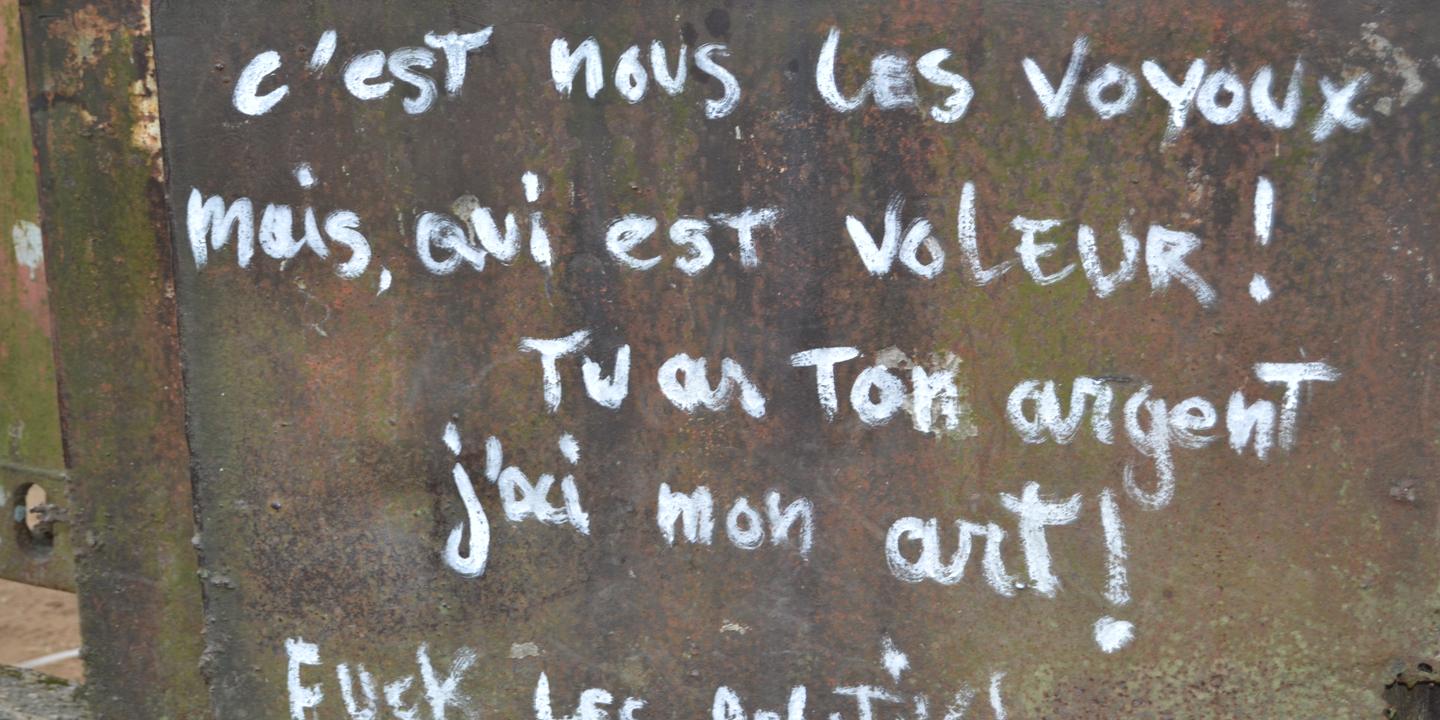 c'est nous les voyoux
mais, qui est voLEUR !
Tu as Ton argent
j'ai mon art !
Fuck Les